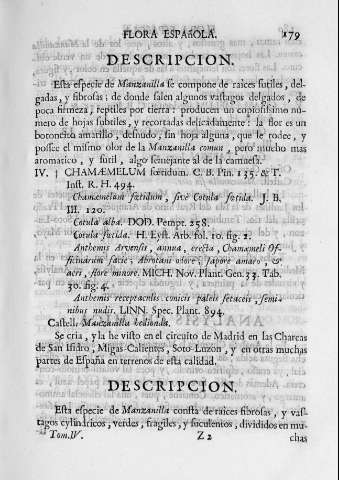 FLORA ESPAñOLA. 179
DESCRIPCION.
Esta especie de Manzanilla se compone de raices sutiles, del-
gadas, y fibrosas; de donde salen algunos vastagos delgados, de
poca firmeza, reptiles por tierra: producen un copiosisimo nu-
mero de hojas subtiles, y recortadas delicadamente: la flor es un
botoncito amarillo, desnudo, sin hoja alguna, que le rodee, y
posee el mismo olor de la Manzanilla comun, pero mucho mas
aromatico, y sutil, algo semejante al de la camuesa.
IV. † CHAMÆMELUM fœtidum. C. B. Pin. 135. & T.
Inst. R. H. 494.
Chamæmelum fœtidum, sive Cotula fœtida. J. B.
III. 120.
Cotula alba. DOD. Pempt. 258.
Cotula fœtida. H. Eyst. Æst. fol. 10. fig. 2.
Anthemis Arvensis, annua, erecta, Chamæmeli Of-
ficinarum facie; Abrotani odore; sapore amaro, &
acri, flore minore. MICH. Nov. Plant. Gen. 32. Tab.
30. fig. 4.
Anthemis receptaculis conicis paleis setaceis, semi-
nibus nudis. LINN. Spec. Plant. 894.
Castell. Manzanilla hedionda.
Se cria, y la he visto en el circuito de Madrid en las Charcas
de San Isidro, Migas-Calientes, Soto-Luzon, y en otras muchas
partes de España en terrenos de esta calidad.
DESCRIPCION.
Esta especie de Manzanilla consta de raices fibrosas, y vas-
tagos cylindricos, verdes, fragiles, y suculentos, divididos en mu-
Tom. IV. Z 2 chas